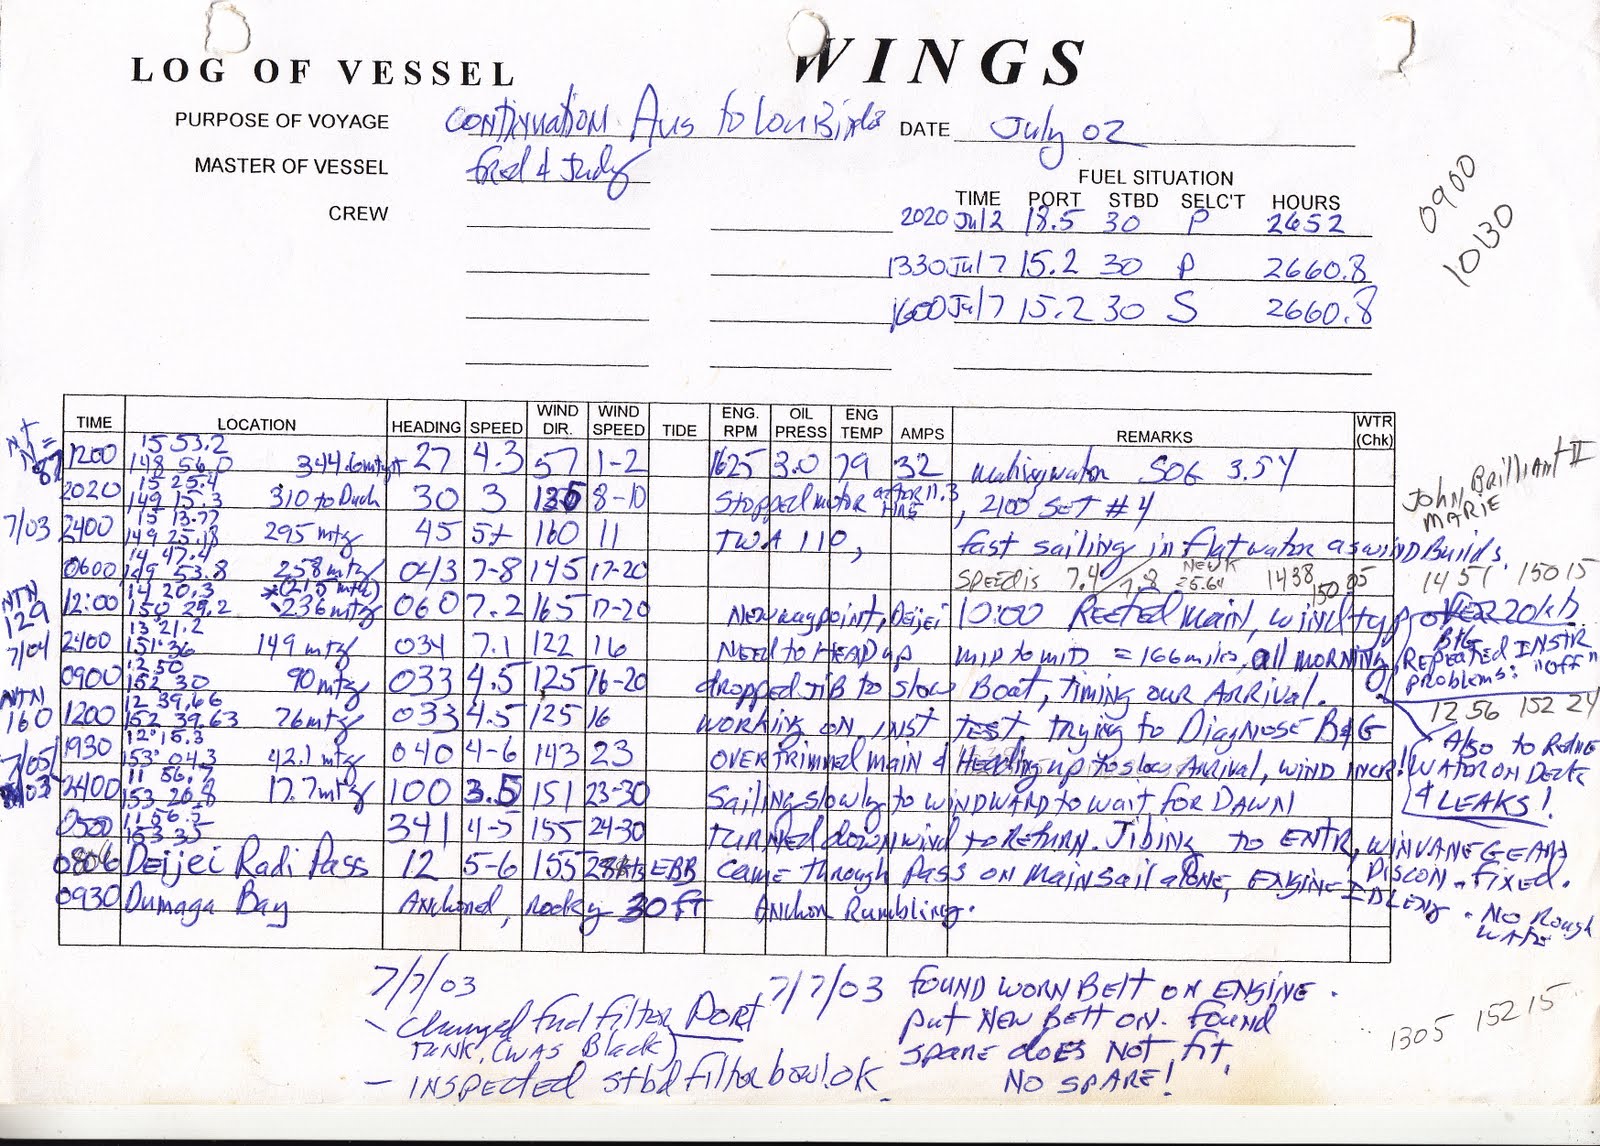 LOG OF VESSEL WINGS
PURPOSE OF VOYAGE Continuation Aus to Lou DATE July 02
MASTER OF VESSEL Fred & Judy
FUEL SITUATION
CREW TIME PORT STBD SELC'T HOURS
2020 Jul 2 18.5 30 P 2652
1330 Jul 7 15.2 30 P 2660.8
1600 Jul 7 15.2 30 S 2660.8
0900
1030
TIME LOCATION HEADING SPEED WIND DIR. WIND SPEED TIDE ENG. RPM OIL PRESS ENG TEMP AMPS REMARKS WTR (Chk)
1200 15 53.2 148 56.0 344.6 27 4.3 57 1-2 1625 3.0 79 32 making water SOG 3.54
2020 15 25.4 149 15.3 310 to Duch 30 3 135 8-10 Stopped motor after 11.3 HRS, 2100 SET #4
7/03 2400 15 13.77 149 25.18 295 mtg 45 5+ 160 11 TWA 110, fast sailing in flat water as wind Builds.
0600 14 47.4 149 53.8 258 mtg 043 7-8 145 17-20 SPEED is 7.4 / 7.8 25.64 1438 150 05
NTN 129 12:00 14 20.3 150 29.2 236 mtg (215 mtg) 060 7.2 165 17-20 New waypoint, Deijei 10:00 Reefed main, wind typ over 20 kts
7/04 2400 13 21.2 151 36 149 mtg 034 7.1 122 16 NEED to HEAD up MID to MID = 166 miles, all MORNING, REPEATED INSTR problems: "off"
0900 12 50 152 30 90 mtg 033 4.5 125 16-20 dropped JIB to slow Boat, timing our ARRIVAL.
NTN 160 1200 12 39.66 152 39.63 76 mtg 033 4.5 125 16 WORKING ON INST TEST, trying to Diagnose B&G
7/05 1930 12 15.3 153 04.3 42.1 mtg 040 4-6 143 23 OVERTrimmed main & Heading up to slow Arrival, WIND INCR!
2400 11 56.7 153 20.8 17.7 mtg 100 3.5 151 23-30 Sailing slowly to WINDWARD to wait for DAWN
0500 11 56.5 153 35 341 4-5 155 24-30 TURNED downwind to return. Jibing to ENTR, WINVANE GEAR DISCON - FIXED.
0806 Deijei Radi Pass 12 5-6 155 28kts EBB Came through Pass on Mainsail alone, ENGINE IDLENG - NO Rough
0930 Dumaga Bay Anchored, rocky 30 ft Anchor Rumbling.
John, Brilliant II
MARIE
14 51 150 15
B&G
12 56 152 24
Also to Reduce
WATER ON DECK
& LEAKS!
1305 152 15
7/7/03
- Changed fuel filter PORT
TANK. (WAS Black)
- INSPECTED stbd filter bowl OK
7/7/03 FOUND WORN BELT ON ENGINE.
put NEW BELT ON. Found
spare does Not fit.
NO SPARE!